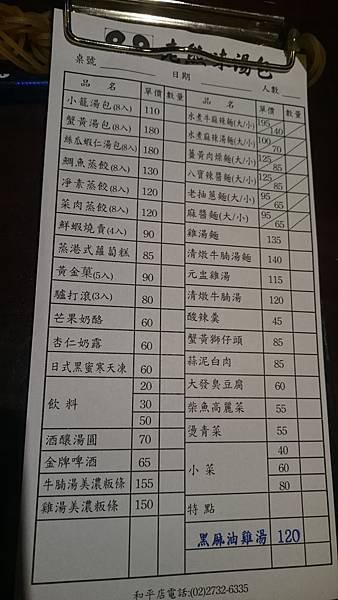 湯包
桌號 日期 人數
品名 單價 數量 品名 單價 數量
小籠湯包(8入) 110
蟹黃湯包(8入) 180
絲瓜蝦仁湯包(8入) 180
鯛魚蒸餃(8入) 130
淨素蒸餃(8入) 120
菜肉蒸餃(8入) 120
鮮蝦燒賣(4入) 90
蒸港式蘿蔔糕 85
黃金菓(5入) 90
驢打滾(3入) 80
芒果奶酪 60
杏仁奶露 60
日式黑蜜寒天凍 60
飲料 20
30
50
酒釀湯圓 70
金牌啤酒 65
牛腩湯美濃粄條 155
雞湯美濃粄條 150
水煮牛麻辣麵(大/小) 195 140
水煮麻辣湯麵(大/小) 100 70
薑黃肉燥麵(大/小) 125 85
八寶辣醬麵(大/小) 125 85
老抽蔥麵(大/小)
麻醬麵(大/小) 95 65
雞湯麵 135
清燉牛腩湯麵 140
元盅雞湯 115
清燉牛腩湯 120
酸辣羹 45
蟹黃獅仔頭 85
蒜泥白肉 85
大發臭豆腐 60
柴魚高麗菜 55
燙青菜 55
小菜 40
60
80
特點
黑麻油雞湯 120
和平店電話:(02)2732-6335